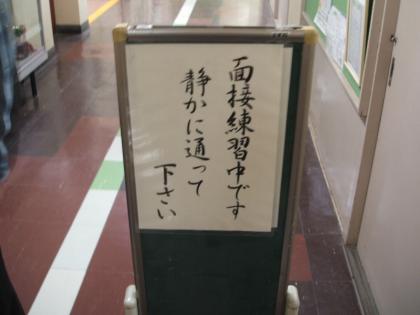 面接練習中です
静かに通って
下さい